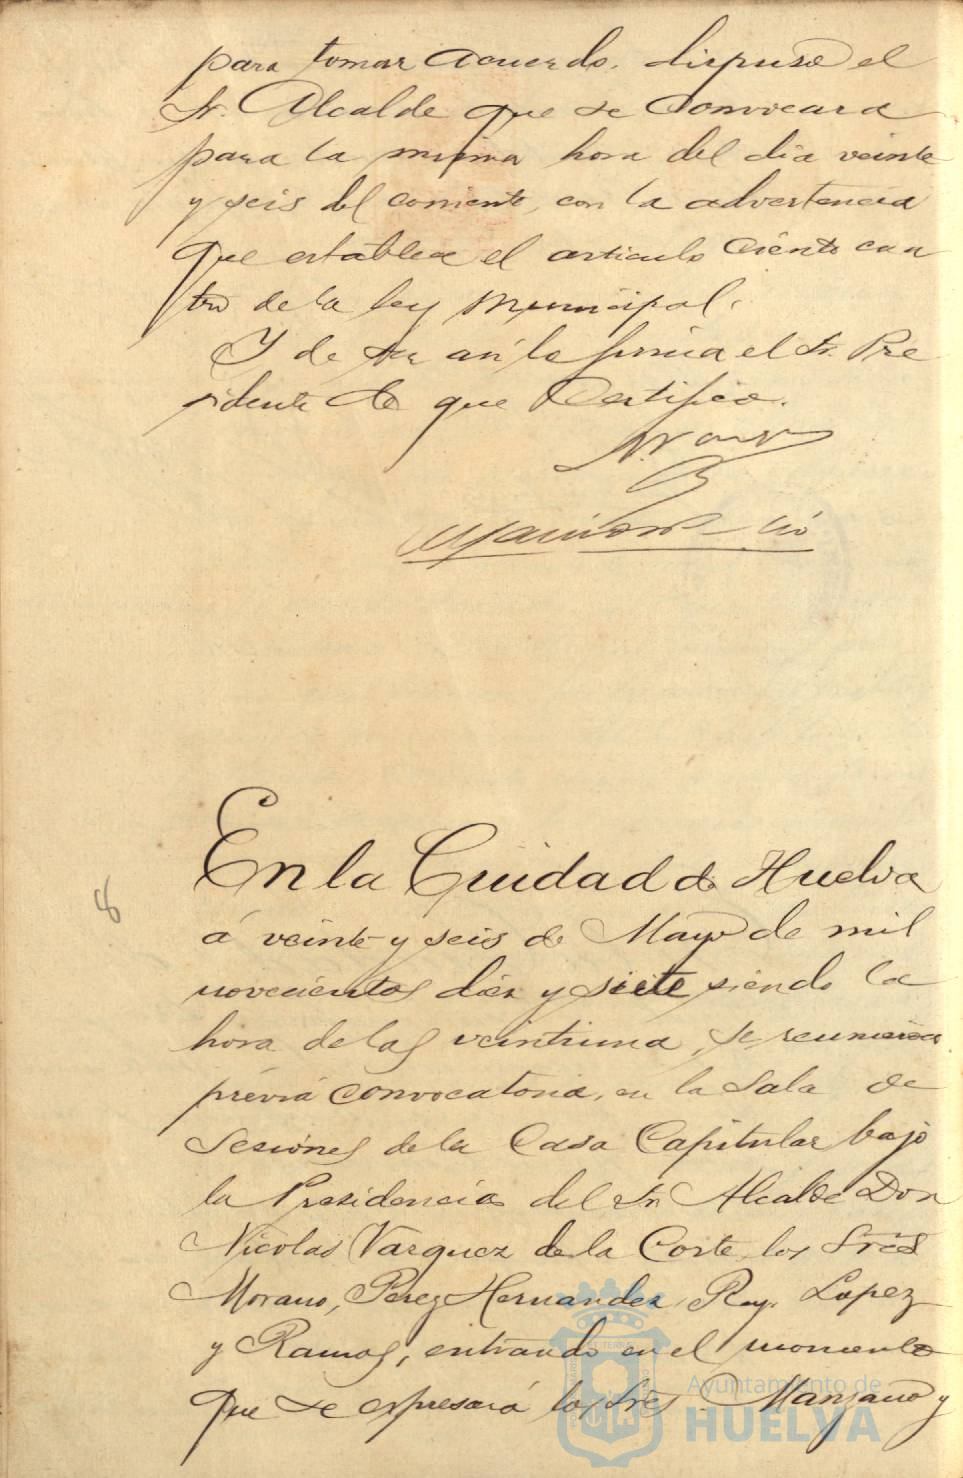 para tomar acuerdo, dispuso el
Sr. Alcalde que se convocara
para la misma hora del dia veinte
y seis del corriente, con la advertencia
que establece el articulo ciento cua
tro de la ley Municipal.
Y de ser asi lo firma el Sr. Pre
sidente de que Certifico.
En la Cuidad de Huelva
8
á veinte y seis de Mayo de mil
novecientos diez y siete siendo la
hora de las veintiuna, se reunieron
prévia convocatoria, en la Sala de
Sesiones de la Casa Capitular bajo
la Presidencia del Sr. Alcalde Don
Nicolas Vazquez de la Corte, los Sres
Morano, Perez Hernandez, Rey, Lopez
y Ramos, entrando en el momento
que se espresará los Sres. Manzano y
Ayuntamiento de
HUELVA